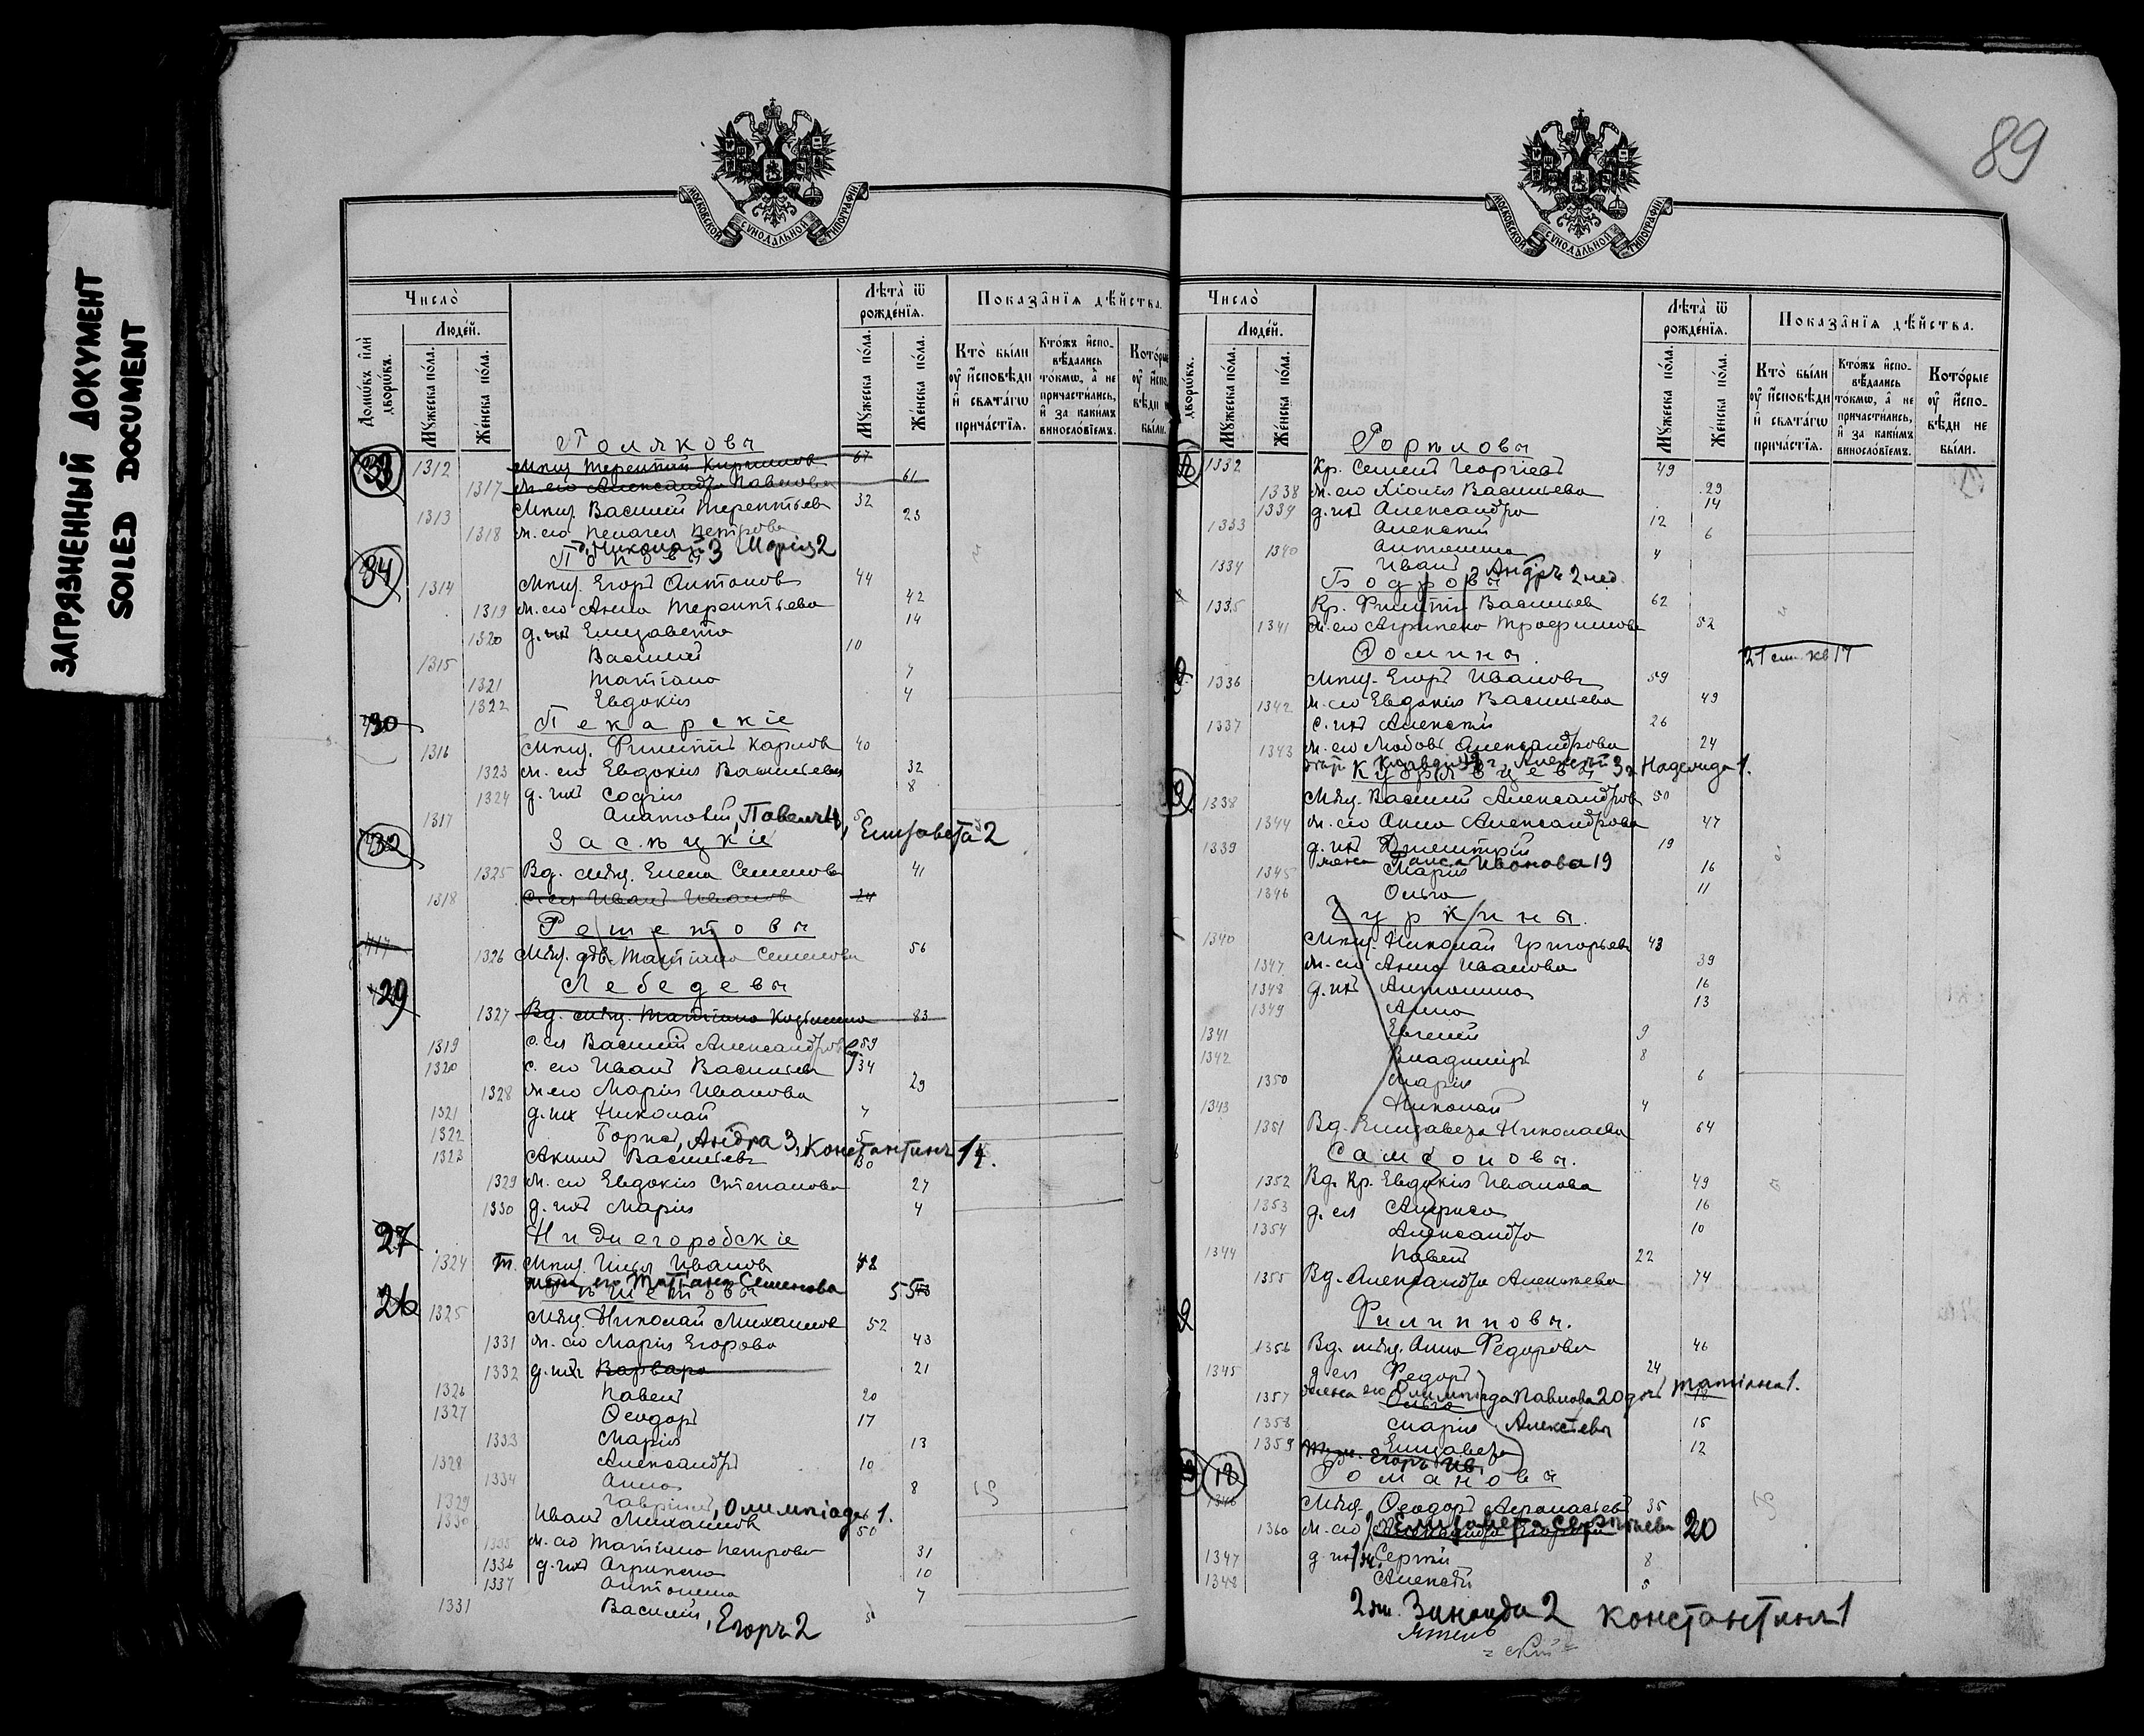 ЗАГРЯЗНЕННЫЙ ДОКУМЕНТ
SOILED DOCUMENT
МОСКОВСКОЙ СѴНОДАЛЬНОЙ ТИПОГРАФІИ
Число̀
Людей.
Лѣта̀ ѿ рожденїѧ.
Показанїѧ дѣйства.
Домѡвъ и҆лѝ дворѡвъ.
Мꙋжеска пола.
Женска пола.
Мꙋжеска пола.
Женска пола.
Кто̀ были оу҆ и҆сповѣди и҆ свѧтагѡ причастїѧ.
Ктожъ и҆сповѣдались токмѡ, а҆ не причастились, и҆ за какимъ винословїемъ.
Поляковы
33 1312 Мѣщ. Терентій 67
1317 ж. его Александра Павлова 61
1313 Мѣщ. Василій Терентьев 32
1318 ж. его Пелагея Петрова 23
Николай 3 Марія 2
34
1314 Мѣщ. Егоръ Антонов 44
1319 ж. его Анна Терентьева 42
1320 д. ихъ Елизавета 14
1315 Василій 10
1321 Татіана 7
1322 Евдокія 4
30 Пекарскіе
1316 Мѣщ. Филиппъ Карпов 40
1323 ж. его Евдокія Васильева 32
1324 д. ихъ Софія 8
1317 Анатолій, Павелъ 4, Елисавета 2
32 Засѣцкіе
1325 Вд. мѣщ. Елена Семенова 41
1318 с. ея Иванъ Иванов 24
Решетовы
1326 Мѣщ. вдв. Татіана Семенова 56
29 Лебедевы
1327 Вд. мѣщ. Татіана 83
1319 с. ея Василій Александров 59
1320 с. его Иванъ Васильев 34
1328 ж. его Марія Иванова 29
1321 д. их Николай 7
1322 Борисъ, 3, Константинъ 1
1323 Акимъ Васильевъ 30
1329 ж. его Евдокія Степанова 27
1330 д. ихъ Марія 4
27 Нижнегородскіе
1324 Мѣщ. Илья Иванов
жена его Татіана Семенова 55
26 Рѣшетовы
1325 Мѣщ. Николай Михаилов 52
1331 ж. его Марія Егорова 43
1332 д. ихъ Варвара 21
1326 Павелъ 20
1327 Ѳеодоръ 17
1333 Марія 13
1328 Александръ 10
1334 Анна 8
1329 Гавріилъ, Олимпіада 1.
1330 Иванъ Михаилов 50
1335 ж. его Татіана Петрова 31
1336 д. ихъ Агрипина 10
1337 Антонина 7
1331 Василій, Егоръ 2 5
89
МОСКОВСКОЙ СѴНОДАЛЬНОЙ ТИПОГРАФІИ
Число̀
Людей.
Лѣта̀ ѿ рожденїѧ.
Показанїѧ дѣйства.
дворѡвъ.
Мꙋжеска пола.
Женска пола.
Мꙋжеска пола.
Женска пола.
Кто̀ были оу҆ и҆сповѣди и҆ свѧтагѡ причастїѧ.
Ктожъ и҆сповѣдались токмѡ, а҆ не причастились, и҆ за какимъ винословїемъ.
Которые оу҆ и҆сповѣди не были.
Гориловы
1332 Кр. Семенъ Георгіевъ 49
1338 ж. его Хіонія Васильева 29
1339 д. ихъ Александра 14
1333 Алексѣй 12
1340 Антонина 6
1334 Иванъ 4
Бодровы
1335 Кр. Филиппъ Васильев 62
1341 ж. его Агрипена Трофимова 52
Ѳомины
1336 Мѣщ. Егоръ Ивановъ 59
1342 ж. его Евдокія Васильева 49
1337 с. ихъ Алексѣй 26
1343 ж. его Любовь Александрова 24
Надежда 1.
Кудрявцевы
1338 Мѣщ. Василій Александров 50
1344 ж. его Анна Александрова 47
1339 д. ихъ Дмитрій 19
жена Таиса Иванова 19
1345 Марія 16
1346 Ольга 11
Чуркины.
1340 Мѣщ. Николай Григорьев 43
1347 ж. его Анна Иванова 39
1348 д. ихъ Антонина 16
1349 Анна 13
1341 Евгеній 9
1342 Владиміръ 8
1350 Марія 6
1343 Николай 4
1351 Вд. Елизавета Николаева 64
Самсоновы.
1352 Вд. Кр. Евдокія Иванова 49
1353 д. ея 16
1354 Александра 10
1344 Павелъ 22
1355 Вд. Александра Алексѣева 74
Филипповы.
1356 Вд. мѣщ. Анна Федорова 46
1345 д. ея Федоръ 24
жена его Олимпіада Павлова 20 дочь Татіана 1.
1357 Ольга 18
1358 Марія Алексѣевы 15
1359 Елизавета 12
18 Романовы
1346 Мѣщ. Ѳеодоръ Аѳанасьевъ 35
1360 ж. его Елисавета Сергѣева 20
1347 д. ихъ Сергѣй 8
1348 Алексѣй 5
2 ж. Зинаида 2 Константинъ 1